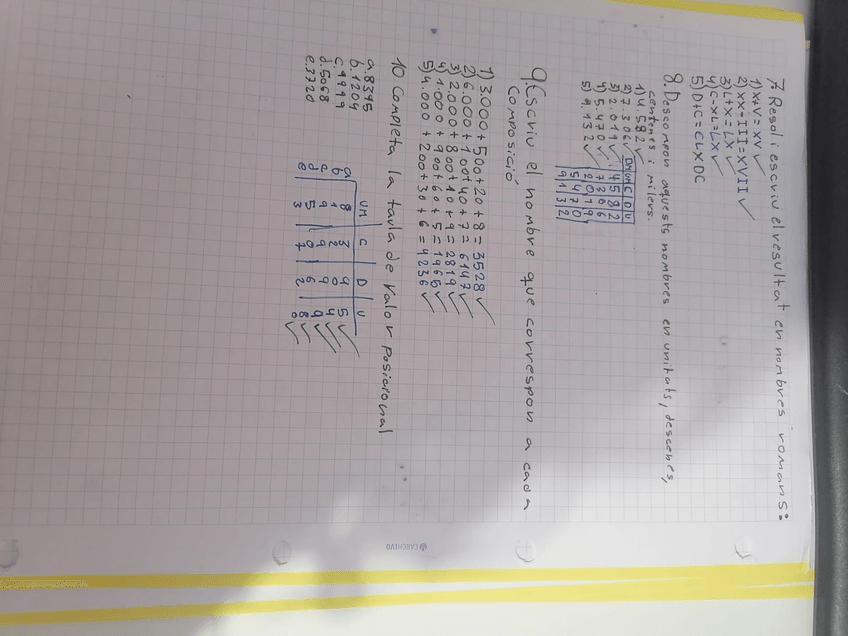 7. Resol i escriu el resultat en nombres romans:
1) X+V = XV ✓
2) XX-III = XVII ✓
3) L+X = LX ✓
4) C-XL = LX ✓
5) D+C = CLX DC
8. Descompon aquests nombres en unitats, descenes,
centenes i milers.
1) 4.582 ✓
2) 7.306 ✓
3) 2.019 ✓
4) 5.470 ✓
5) 9.132 ✓
DM UM C D U
4 5 8 2
7 3 0 6
2 0 1 9
5 4 7 0
9 1 3 2
9. Escriu el nombre que correspon a cada
composició
1) 3.000 + 500 + 20 + 8 = 3528 ✓
2) 6.000 + 100 + 40 + 7 = 6147 ✓
3) 2.000 + 800 + 10 + 9 = 2819 ✓
4) 1.000 + 900 + 60 + 5 = 1965 ✓
5) 4.000 + 200 + 30 + 6 = 4236 ✓
10 Completa la taula de valor posicional
a. 8395
b. 1204
c. 9999
d. 5068
e. 3720
UM C D U
a 8 3 9 5 ✓
b 1 2 0 4 ✓
c 9 9 9 9 ✓
d 5 0 6 8 ✓
e 3 7 2 0 ✓
CARCHIVO